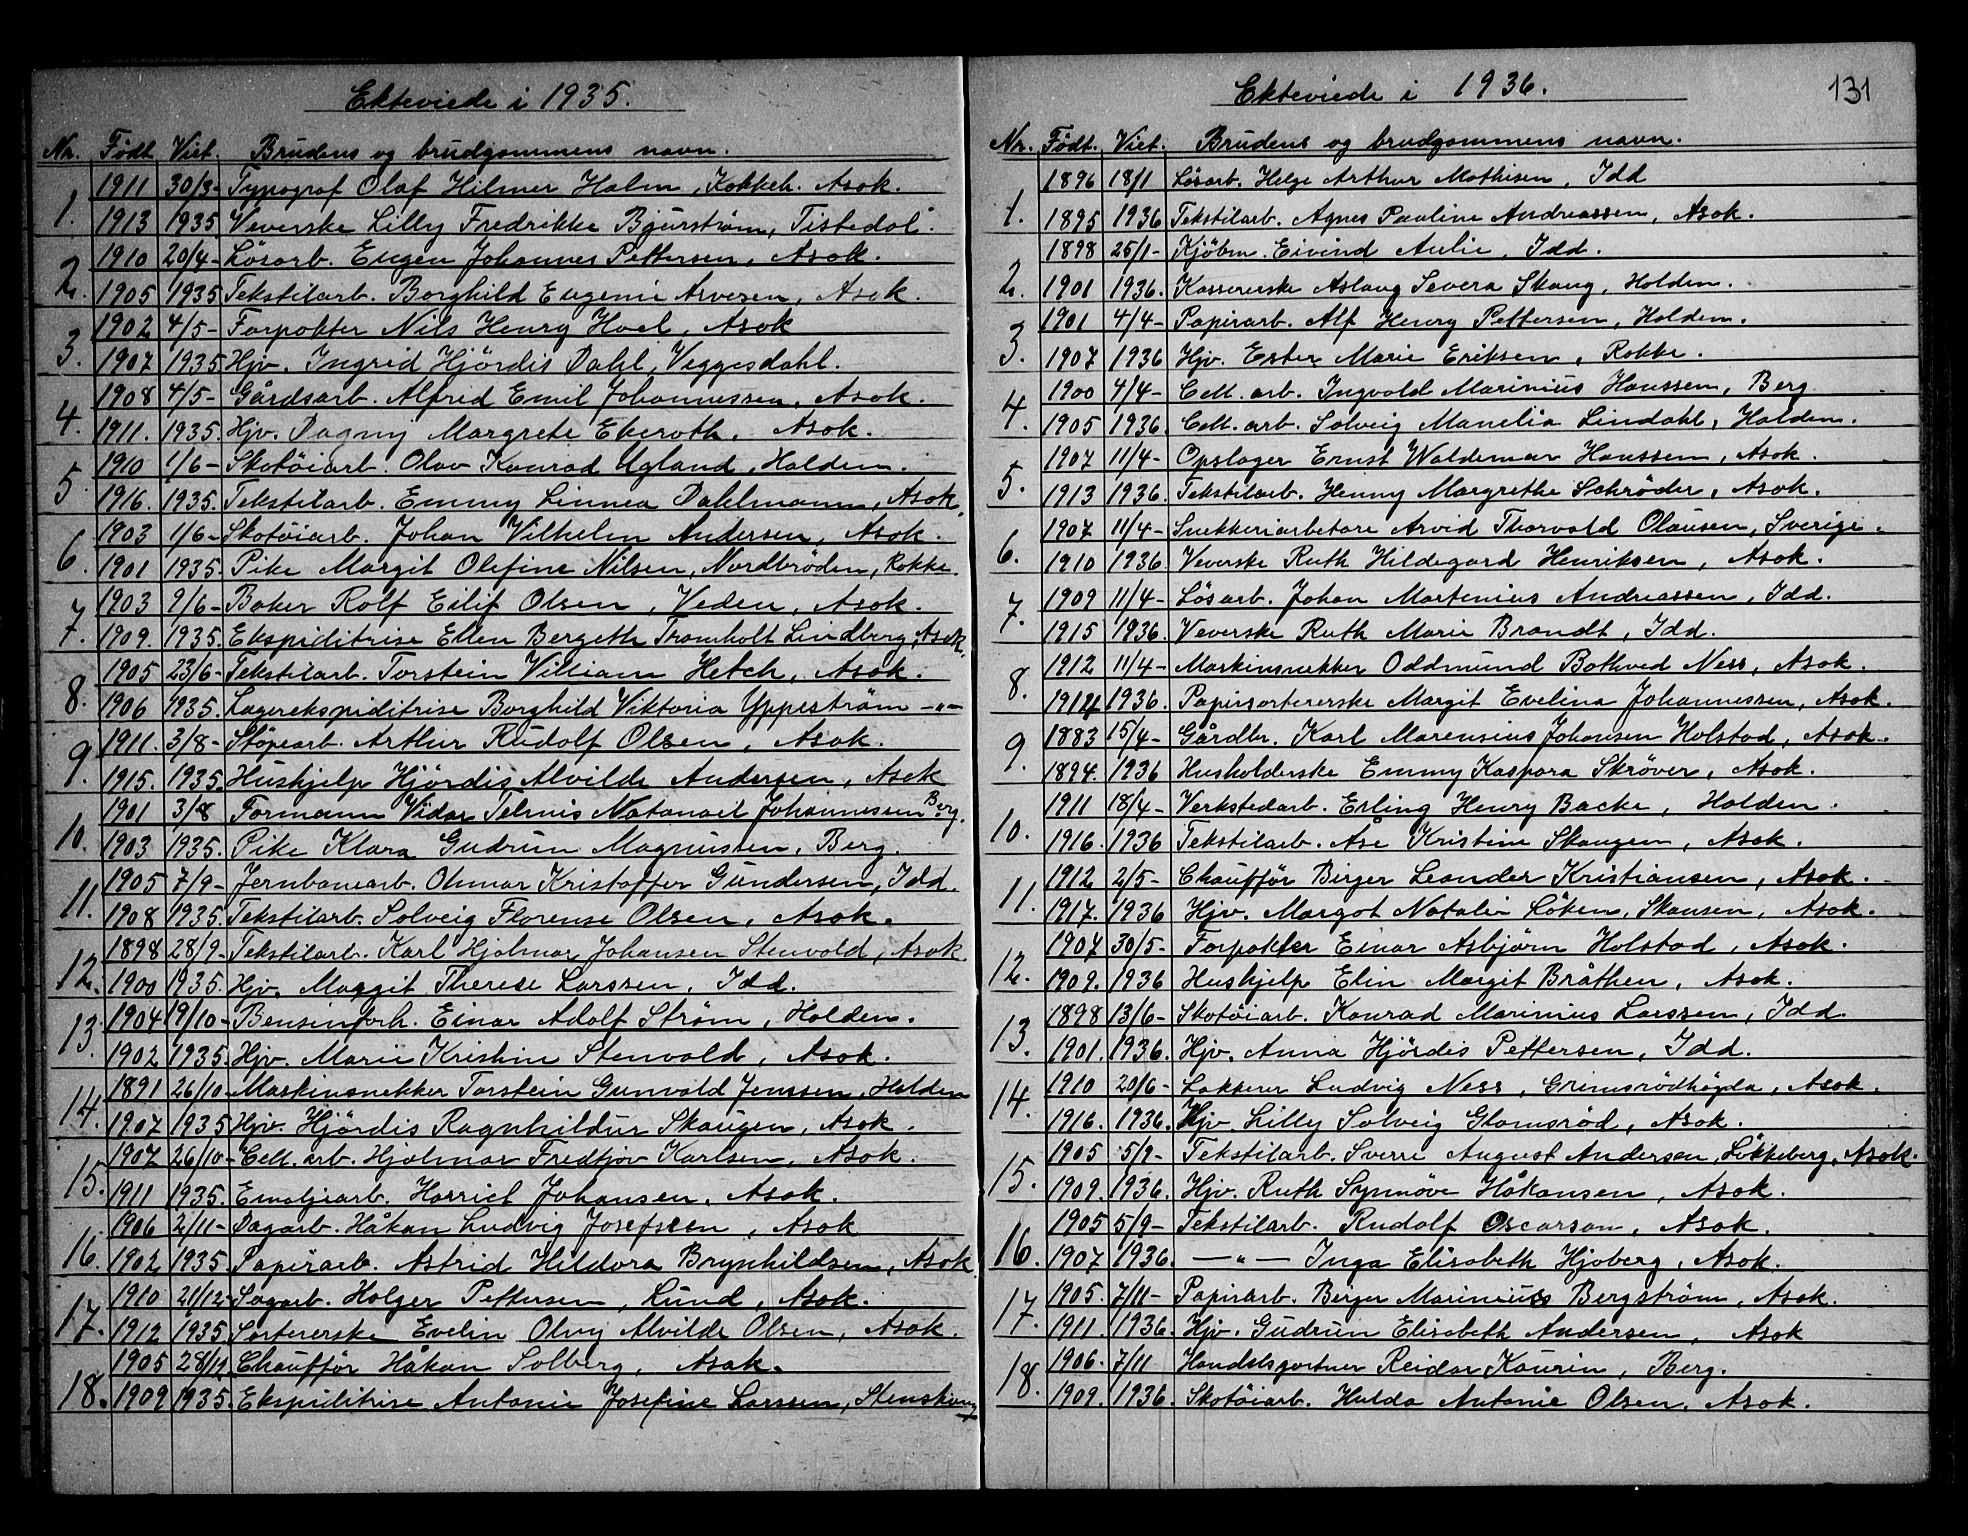 Ekteviede i 1935.
Nr. Født Viet. Brudens og brudgommens navn.
1. 1911 30/3- Typograf Olaf Hilmer Holm, Kokkeh. Asak.
1913 1935 Veverske Lilly Fredrikke Bjurstrøm, Tistedal.
2. 1910 20/4- Løsarb. Eugen Johannes Pettersen, Asak.
1905 1935 Tekstilarb. Borghild Eugenie Arvesen, Asak.
3. 1902 4/5- Forpakter Nils Henry Hoel, Asak
1907 1935 Hjv. Ingrid Hjördis Dahl, Veggesdahl.
4. 1908 4/5- Gårdsarb. Alfred Emil Johannessen, Asak.
1911. 1935. Hjv. Dagny Margrete Ekeroth, Asak.
5. 1910 1/6- Skotöiarb. Olav Konrad Ugland, Halden.
1916. 1935. Tekstilarb. Emmy Linnea Dahlmann, Asak.
6. 1903 1/6- Skotöiarb. Johan Vilhelm Andersen, Asak.
1901 1935. Pike Margit Olefine Nilsen, Nordbröden, Rokke.
7. 1903 9/6- Baker Rolf Eilif Olsen, Veden, Asak.
1909. 1935. Ekspiditrise Ellen Bergeth Tramholt Lindberg, Asak.
8. 1905 23/6- Tekstilarb. Torstein Villiam Hetch, Asak.
1906 1935. Lagerekspiditrise Borghild Viktoria Yppeström -"-
9. 1911. 3/8- Støpearb. Arthur Rudolf Olsen, Asak.
1915. 1935 Hushjelp Hjördis Alvilde Andersen, Asak
10. 1901 3/8 Formann Vidar Telmis Natanael Johannessen Berg.
1903 1935. Pike Klara Gudrun Magnussen, Berg.
11. 1905 7/9- Jernbanearb. Olmar Kristoffer Gundersen, Idd.
1908 1935. Tekstilarb. Solveig Florense Olsen, Asak.
12. 1898 28/9- Tekstilarb. Karl Hjalmar Johansen Stenvold, Asak.
1900 1935. Hjv. Margit Therese Larssen, Idd.
13. 1904 19/10- Bensinforh. Einar Adolf Strøm, Halden.
1902 1935. Hjv. Marie Kristin Stenvold, Asak.
14. 1891 26/10- Maskinsnekker Torstein Gunvald Jenssen, Halden
1907 1935 Hjv. Hjördis Ragnhildur Skaugen, Asak.
15. 1907 26/10- Cell. arb. Hjalmar Fredtjov Karlsen, Asak.
1911 1935. Emaljearb. Harriet Johansen, Asak.
16. 1906 2/11- Dagarb. Håkan Ludvig Josefseen, Asak
1902 1935. Papirarb. Astrid Hildora Brynhildsen, Asak.
17. 1910 21/12- Sagarb. Holger Pettersen, Lund, Asak.
1912 1935. Sortererske Evelin Olvij Alvilde Olsen, Asak.
18. 1905 28/12. Chaufför Håkan Solberg, Asak.
1909 1935. Ekspiditrise Antonie Josefine Larssen, Stenskveng
Ekteviede i 1936.
131
Nr. Født. Viet. Brudens og brudgommens navn.
1. 1896 18/1 Løsarb. Helge Arthur Mathisen, Idd
1895 1936 Tekstilarb. Agnes Pauline Andreassen, Asak.
2. 1898 25/1- Kjöbm. Eivind Aulie, Idd.
1901 1936. Kassererske Aslaug Severa Skaug, Halden.
3. 1901 4/4- Papirarb. Alf Henry Pettersen, Halden.
1907 1936 Hjv. Ester Marie Eriksen, Rokke.
4. 1900 4/4- Cell. arb. Ingvald Marinius Hanssen, Berg
1905 1936. Cell. arb. Solveig Manelia Lindahl, Halden.
5. 1907 11/4- Opslager Ernst Waldemar Hanssen, Asak.
1913 1936. Tekstilarb. Henny Margrethe Schrøder, Asak.
6. 1907 11/4- Snekkeriarbetare Arvid Thorvald Olausen, Sverige.
1910 1936. Veverske Ruth Hildegard Henriksen, Asak.
7. 1909 11/4- Løsarb. Johan Martenius Andreassen, Idd.
1915 1936. Veverske Ruth Marie Brandt, Idd.
8. 1912 11/4- Maskinsnekker Oddmund Bothved Ness, Asak.
1914 1936. Papirsortererske Margit Evelina Johannessen, Asak.
9. 1883 15/4- Gårdbr. Karl Marensius Johansen Holstad, Asak.
1894. 1936 Husholderske Emmy Kaspara Skrøver, Asak.
10. 1911 18/4- Verkstedarb. Erling Henry Backe, Halden.
1916. 1936 Tekstilarb. Åse Kristine Skaugen, Asak.
11. 1912 2/5- Chaufför Birger Leander Kristiansen, Asak.
1917. 1936 Hjv. Margot Natalie Løken, Skansen, Asak.
12. 1907 30/5- Forpakter Einar Asbjörn Holstad, Asak.
1909. 1936 Hushjelp Elin Margit Bråthen, Asak.
13. 1898 13/6- Skotöiarb. Konrad Marinius Larssen, Idd.
1901. 1936. Hjv. Anna Hjördis Pettersen, Idd.
14. 1910 20/6- Lakkerer Ludvig Ness, Grimsrödhögda, Asak.
1916. 1936. Hjv Lilly Solveig Glomsrød, Asak.
15. 1905 5/9- Tekstilarb. Sverre August Andersen, Løkkeberg, Asak.
1909. 1936. Hjv. Ruth Synnöve Håkansen, Asak.
16. 1905 5/9- Tekstilarb. Rudolf Oscarson, Asak.
1907 1936. -"- Inga Elisabeth Hjoberg, Asak.
17. 1905. 7/11- Papirarb. Berger Mariniuss Bergström, Asak.
1911. 1936. Hjv. Gudrun Elisabeth Andersen, Asak
18. 1906. 7/11 Handelsgartner Reidar Kaurin, Berg.
1909. 1936. Skotöiarb. Hulda Antonie Olsen, Asak.